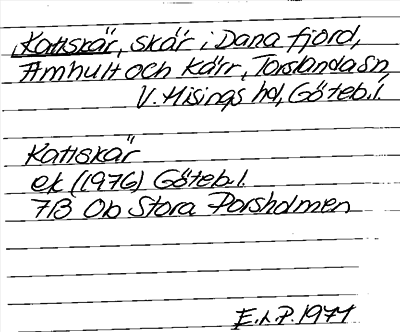 Kattskär, skär i Dana fjord,
Amhult och Kärr, Torslanda sn,
V. Hisings hd, Göteb.l.
Kattskär
ek (1976) Göteb.l.
7B 0b Stora Porsholmen
E.L.P. 1977